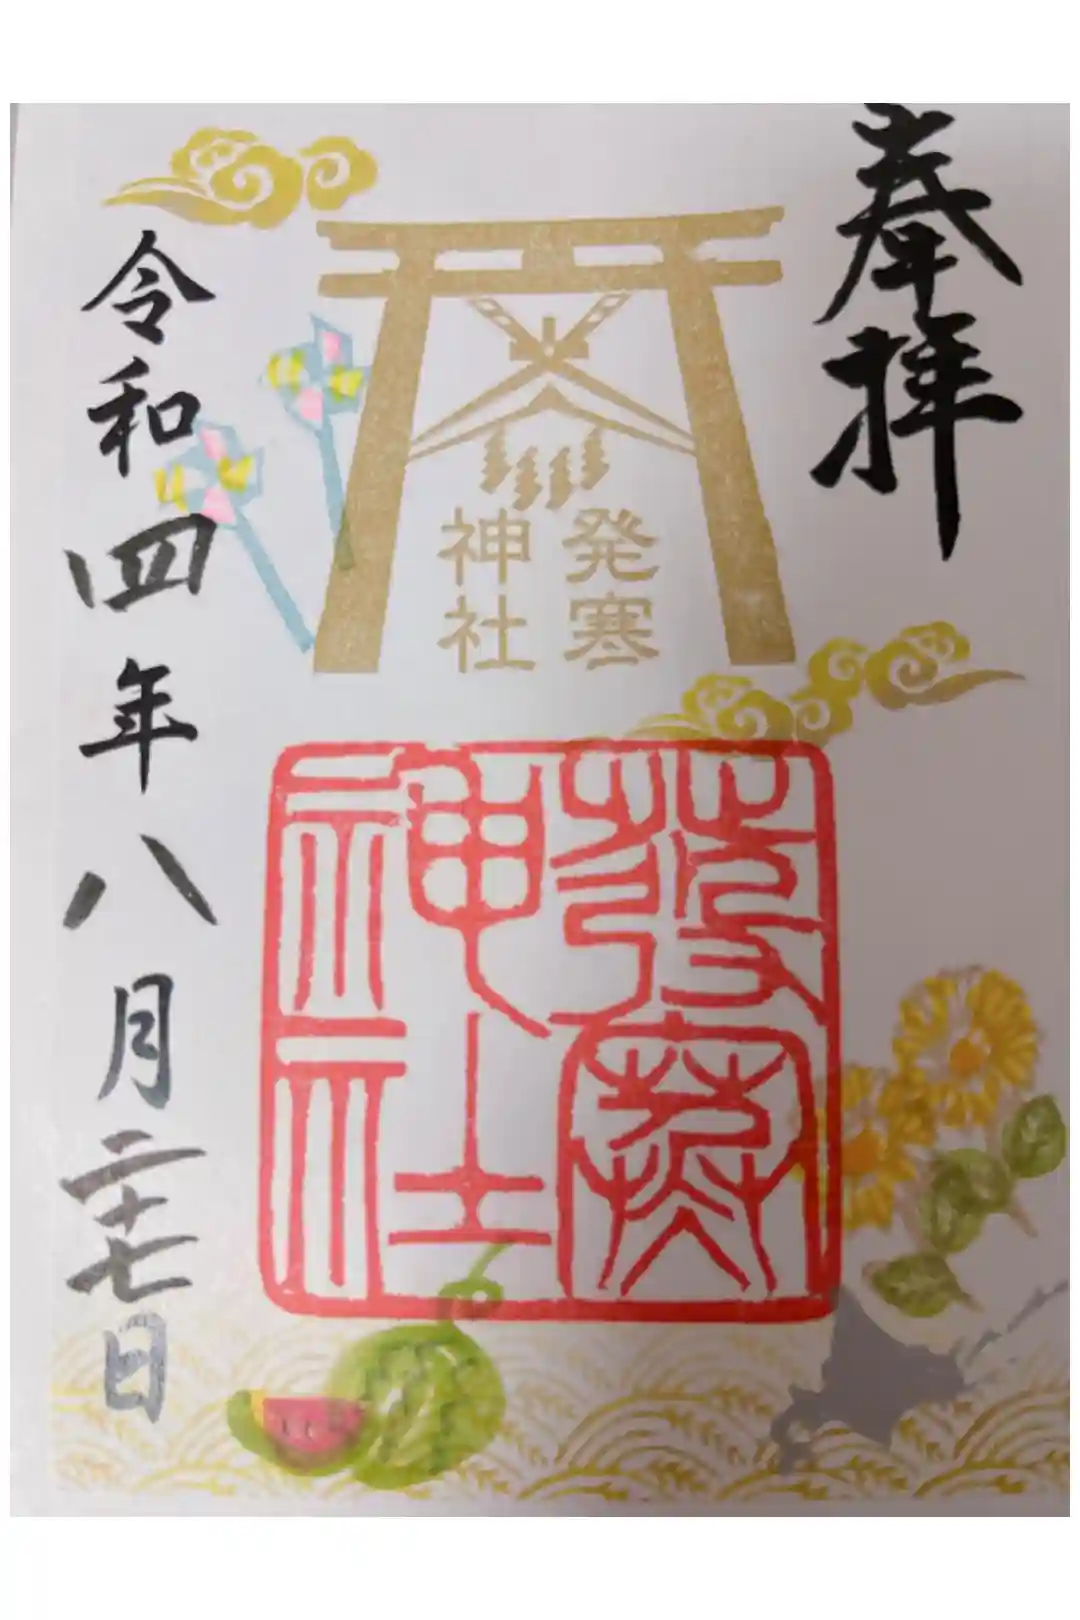 奉拝
発寒
神社
発寒
神社
令和四年八月二十七日